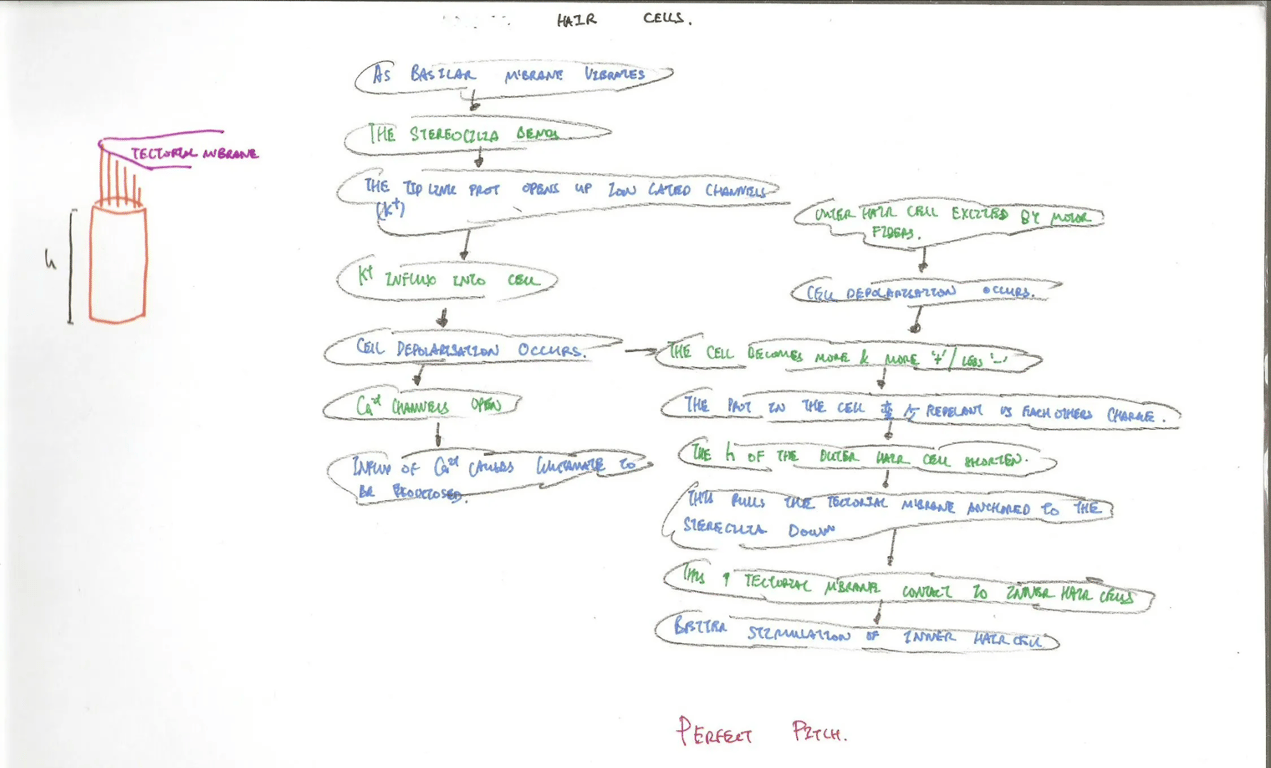 HAIR CELLS.
AS BASILAR M'BRANE VIBRATES
THE STEREOCILIA BENDS
TECTORIAL M'BRANE
THE TIP LINK PROT OPENS UP ION GATED CHANNELS
(K+)
OUTER HAIR CELL EXCITED BY MOTOR
FIBERS.
K+ INFLUX INTO CELL
h
CELL DEPOLARISATION OCCURS.
CELL DEPOLARISATION OCCURS.
THE CELL BECOMES MORE & MORE '+'/ LESS '-'
Ca2+ CHANNELS OPEN
THE PROT IN THE CELL REPELANT VS EACH OTHERS CHARGE.
THE h OF THE OUTER HAIR CELL SHORTEN.
INFLUX OF Ca2+ CAUSES GLUTAMATE TO
BE
THIS PULLS THE TECTORIAL M'BRANE ANCHORED TO THE
STERECILIA DOWN
THIS ↑ TECTORIAL M'BRANE CONTACT TO INNER HAIR CELLS
BETTER STIMULATION OF INNER HAIR CELL
PERFECT PITCH.